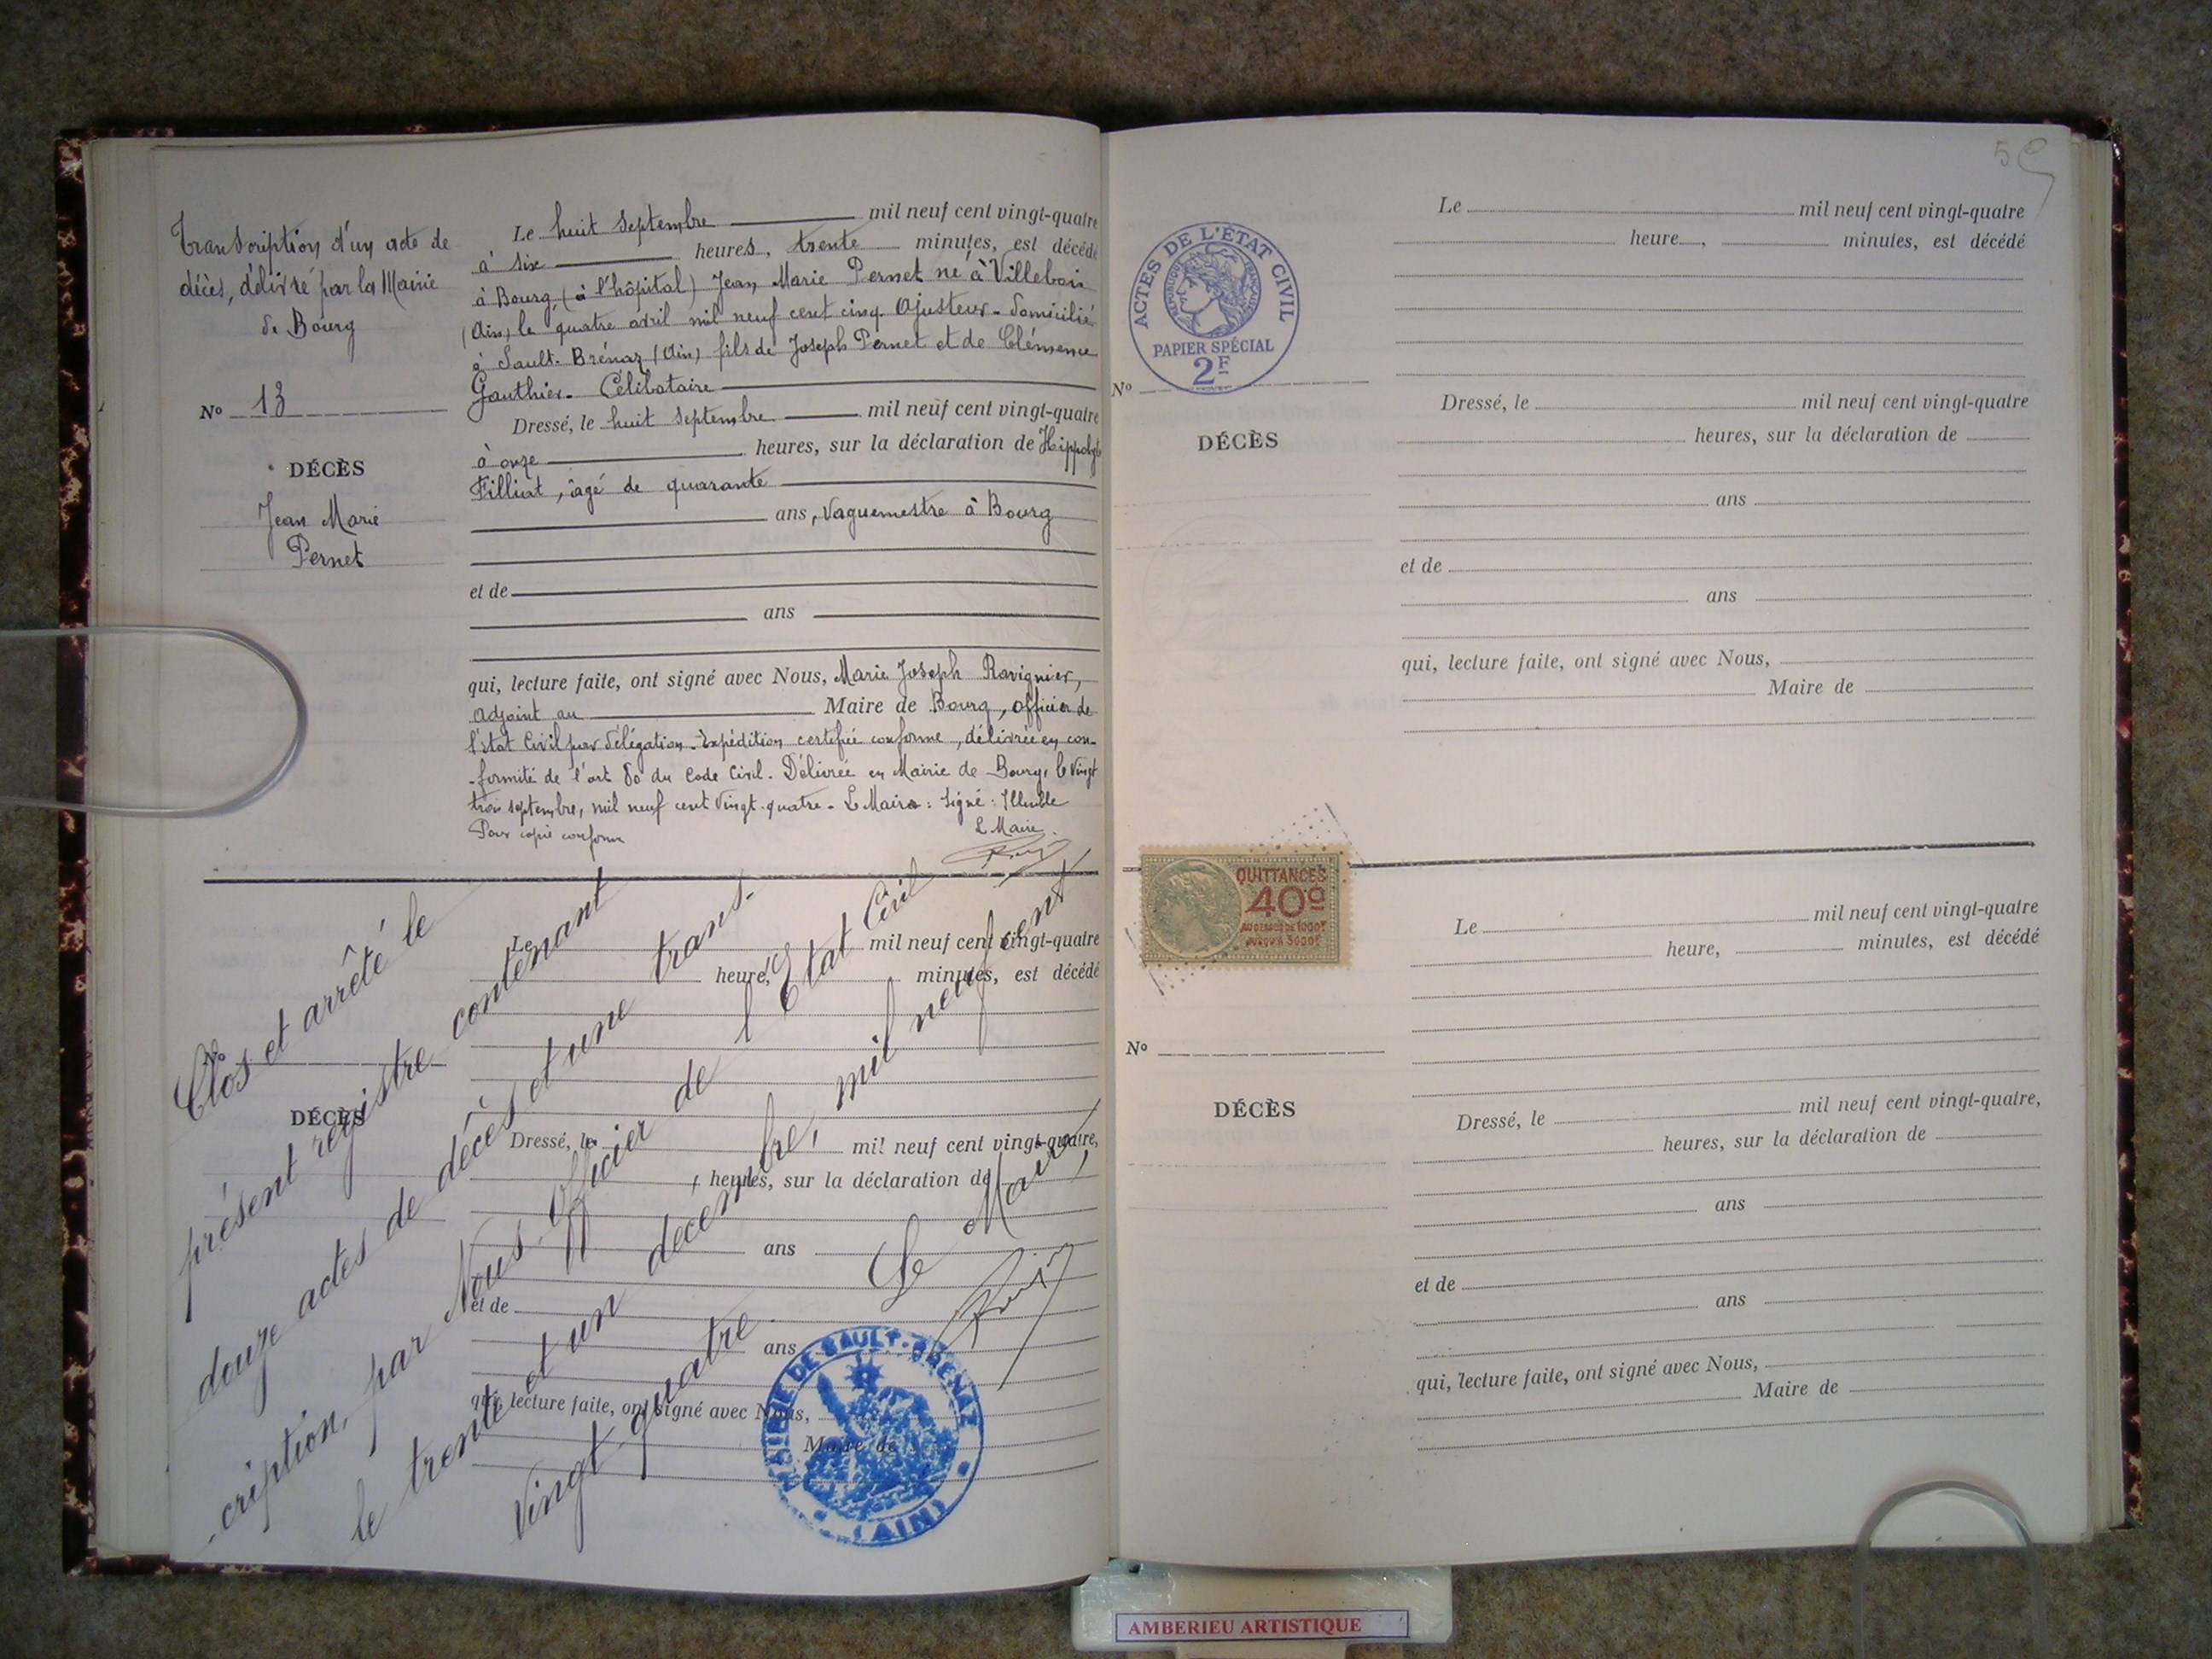 Transcription d'un acte de
décès, délivré par la Mairie
de Bourg
N° 13
DÉCÈS
Jean Marie
Pernet
Le huit Septembre mil neuf cent vingt-quatre
à six heures, trente minutes, est décédé
à Bourg (à l'hôpital) Jean Marie Pernet né à Villebois
(Ain) le quatre avril mil neuf cent cinq. Ajusteur. domicilié
à Sault-Brénaz (Ain) fils de Joseph Pernet et de Clémence
Gauthier. Célibataire
Dressé, le huit Septembre mil neuf cent vingt-quatre
à onze heures, sur la déclaration de Hippolyte
Filliat, âgé de quarante
ans, Vaguemestre à Bourg
et de
ans
qui, lecture faite, ont signé avec Nous, Marie Joseph Ravignier,
adjoint au Maire de Bourg, officier de
l'état Civil par délégation. Expédition certifiée conforme, délivrée en con-
-formité de l'art 80 du Code Civil. Délivrée en Mairie de Bourg, le vingt
trois septembre, mil neuf cent vingt-quatre. Le Maire: Signé: Illisible
Pour copie conforme
Le Maire
Clos et arrêté le
présent registre contenant
douze actes de décès et une trans-
-cription, par Nous Officier de l'Etat Civil
le trente et un décembre, mil neuf cent
vingt quatre.
Le Maire,
Le mil neuf cent vingt-quatre
heure, minutes, est décédé
N°
DÉCÈS
Dressé, le mil neuf cent vingt-quatre,
heures, sur la déclaration de
ans
et de
ans
qui, lecture faite, ont signé avec Nous,
Maire de
MAIRIE DE SAULT-BRÉNAZ
(AIN)
59
ACTES DE L'ÉTAT CIVIL
RÉPUBLIQUE FRANÇAISE
PAPIER SPÉCIAL
2F
N°
DÉCÈS
Le mil neuf cent vingt-quatre
heure, minutes, est décédé
Dressé, le mil neuf cent vingt-quatre
heures, sur la déclaration de
ans
et de
ans
qui, lecture faite, ont signé avec Nous,
Maire de
QUITTANCES
40c
AU DESSUS DE 1000F
JUSQU'A 3000F
N°
DÉCÈS
Le mil neuf cent vingt-quatre
heure, minutes, est décédé
Dressé, le mil neuf cent vingt-quatre,
heures, sur la déclaration de
ans
et de
ans
qui, lecture faite, ont signé avec Nous,
Maire de
AMBERIEU ARTISTIQUE